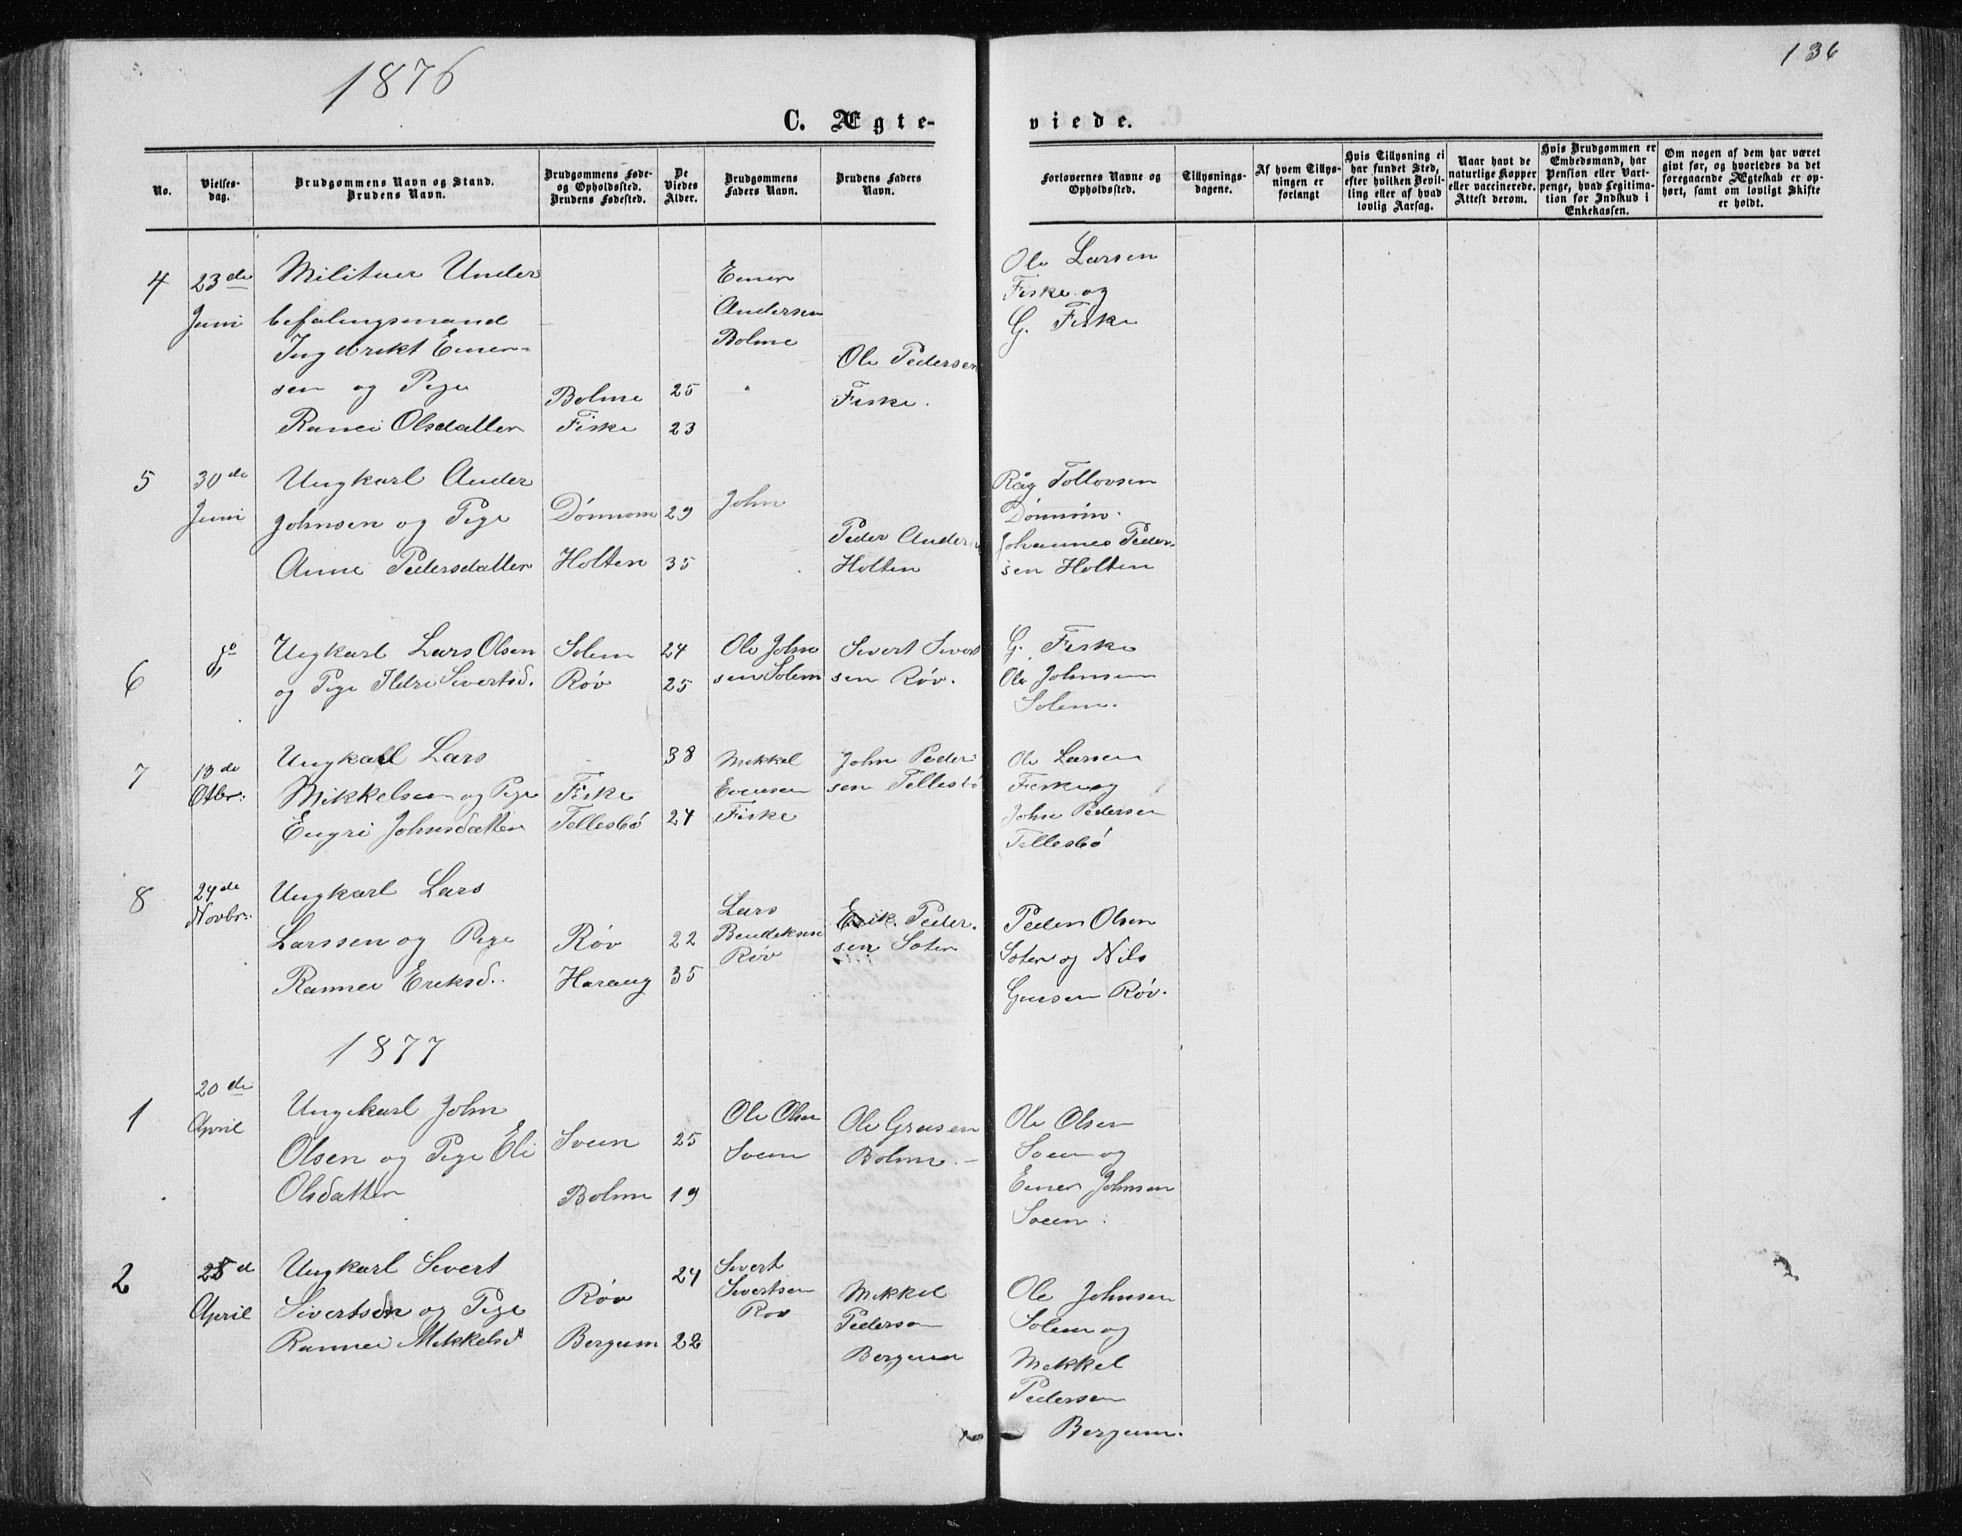 1876
136
C. Ægte-
viede.
No.
Vielses-
dag.
Brudgommens Navn og Stand.
Brudens Navn.
Brudgommens Føde-
og Opholdssted.
Brudens Fødested.
De
Viedes
Alder.
Brudgommens
Faders Navn.
Brudens Faders
Navn.
Forlovernes Navne og
Opholdssted.
Tillysnings-
dagene.
Af hvem Tillys-
ningen er
forlangt
Hvis Tillysning ei
har fundet Sted,
efter hvilken Bevil-
ling eller af hvad
lovlig Aarsag.
Naar havt de
naturlige Kopper
eller vaccinerede.
Attest derom.
Hvis Brudgommen er
Embedsmand, har
Pension eller Vart-
penge, hvad Legitima-
tion for Indskud i
Enkekassen.
Om nogen af dem har været
givt før, og hvorledes da det
foregaaende Ægteskab er op-
hørt, samt om lovligt Skifte
er holdt.
4
23de
Juni
Militær Under
befalingsmand
Ingebrikt Ener-
sen og Pige
Ranei Olsdatter
Bolme
Fiske
25
23
Ener
Andersen
Bolme
Ole Pedersen
Fiske.
Ole Larsen
Fiske og
G. Fiske
5
30de
Juni
Ungkarl Ander
Johnsen og Pige
Anne Pedersdatter
Dønnem
Holten
29
35
John
Peder Ander
Holten
Råg Tollovsen
Dønnem.
Johannes Peder-
sen Holten
6
Ungkarl Lars Olsen
og Pige Ildri Sivertsd.
Solem
Røv
24
25
Ole John
sen Solem
Sivert Sivert
sen Røv.
G. Fiske
Ole Johnsen
Solem.
7
13de
Otbr:
Ungkarl Lars
Mikkelsen og Pige
Engri Johnsdatter
Fiske
Tellesbø
38
24
Mikkel
Evensen
Fiske
John Peder-
sen Tellesbø
Ole Larsen
Fiske og
John Pedersen
Tellesbø
8
24de
Novbr:
Ungkarl Lars
Larssen og Pige
Rannei Eriksd.
Røv
Harang
22
35
Lars
Bendiksen
Røv
Erik Peder-
sen Soter
Peder Olsen
Soter og Nils
Røv.
1877
1
20de
April
Ungekarl John
Olsen og Pige Eli
Olsdatter
Sveen
Bolme
25
19
Ole Olsen
Sveen
Ole Grusen
Bolme. -
Ole Olsen
Sveen og
Ener Johnsen
Sveen.
2
28d
April
Ungkarl Sivert
Sivertsen og Pige
Rannei Mikkelsd
Røv
Bergum
24
22
Sivert
Sivertsen
Røv
Mikkel
Pedersen
Bergum
Ole Johnsen
Solem og
Mikkel
Pedersen
Bergum.